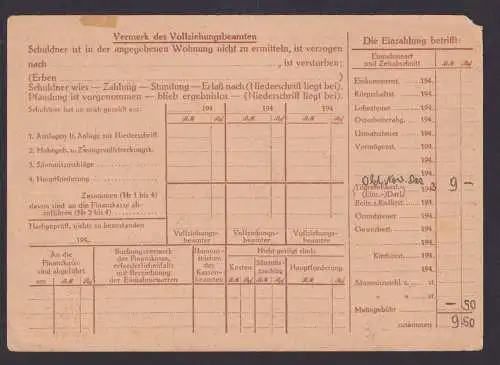 Vermerk des Vollziehungsbeamten
Schuldner ist in der angegebenen Wohnung nicht zu ermitteln, ist verzogen
nach , ist verstorben;
(Erben )
Schuldner wies — Zahlung — Stundung — Erlaß nach (Niederschrift liegt bei).
Pfändung ist vorgenommen — blieb ergebnislos — (Niederschrift liegt bei).
Schuldner hat an mich gezahlt am:
194 194 194
RM Rpf RM Rpf RM Rpf
1. Auslagen lt. Anlage zur Niederschrift
2. Mahngeb. u. Zwangsvollstreckungsk.
3. Säumniszuschläge
4. Hauptforderung
Zusammen (Nr 1 bis 4)
davon sind an die Finanzkasse ab-
zuführen (Nr 2 bis 4)
Nachgeprüft, nichts zu beanstanden
194
Vollziehungs-
beamter
Vollziehungs-
beamter
Vollziehungs-
beamter
An die
Finanzkasse
sind abgeführt
am RM Rpf
Buchungsvermerk
der Finanzkasse,
erforderlichenfalls
mit Bezeichnung
der Einnahmearten
Namens-
zeichen
des
Kassen-
beamten
Nicht getilgt sind:
Kosten
Säumnis-
zuschlag
Hauptforderung
RM Rpf RM Rpf RM Rpf
Die Einzahlung betrifft:
Einnahmeart
und Zeitabschnitt
RM Rpf
Einkommenst. 194
Körperschst. 194
Lohnsteuer 194
Ostarbeiterabg. 194
Umsatzsteuer 194
Vermögenst. 194
194
194
Okt. Nov. Dez.
194 3 9 —
(Einr.-)Darl.
194
Grundsteuer 194
Gewerbest. 194
194
Kirchenst. 194
194
Säumniszuschl. z. st
" " st
Mahngebühr — 50
zusammen 9 50